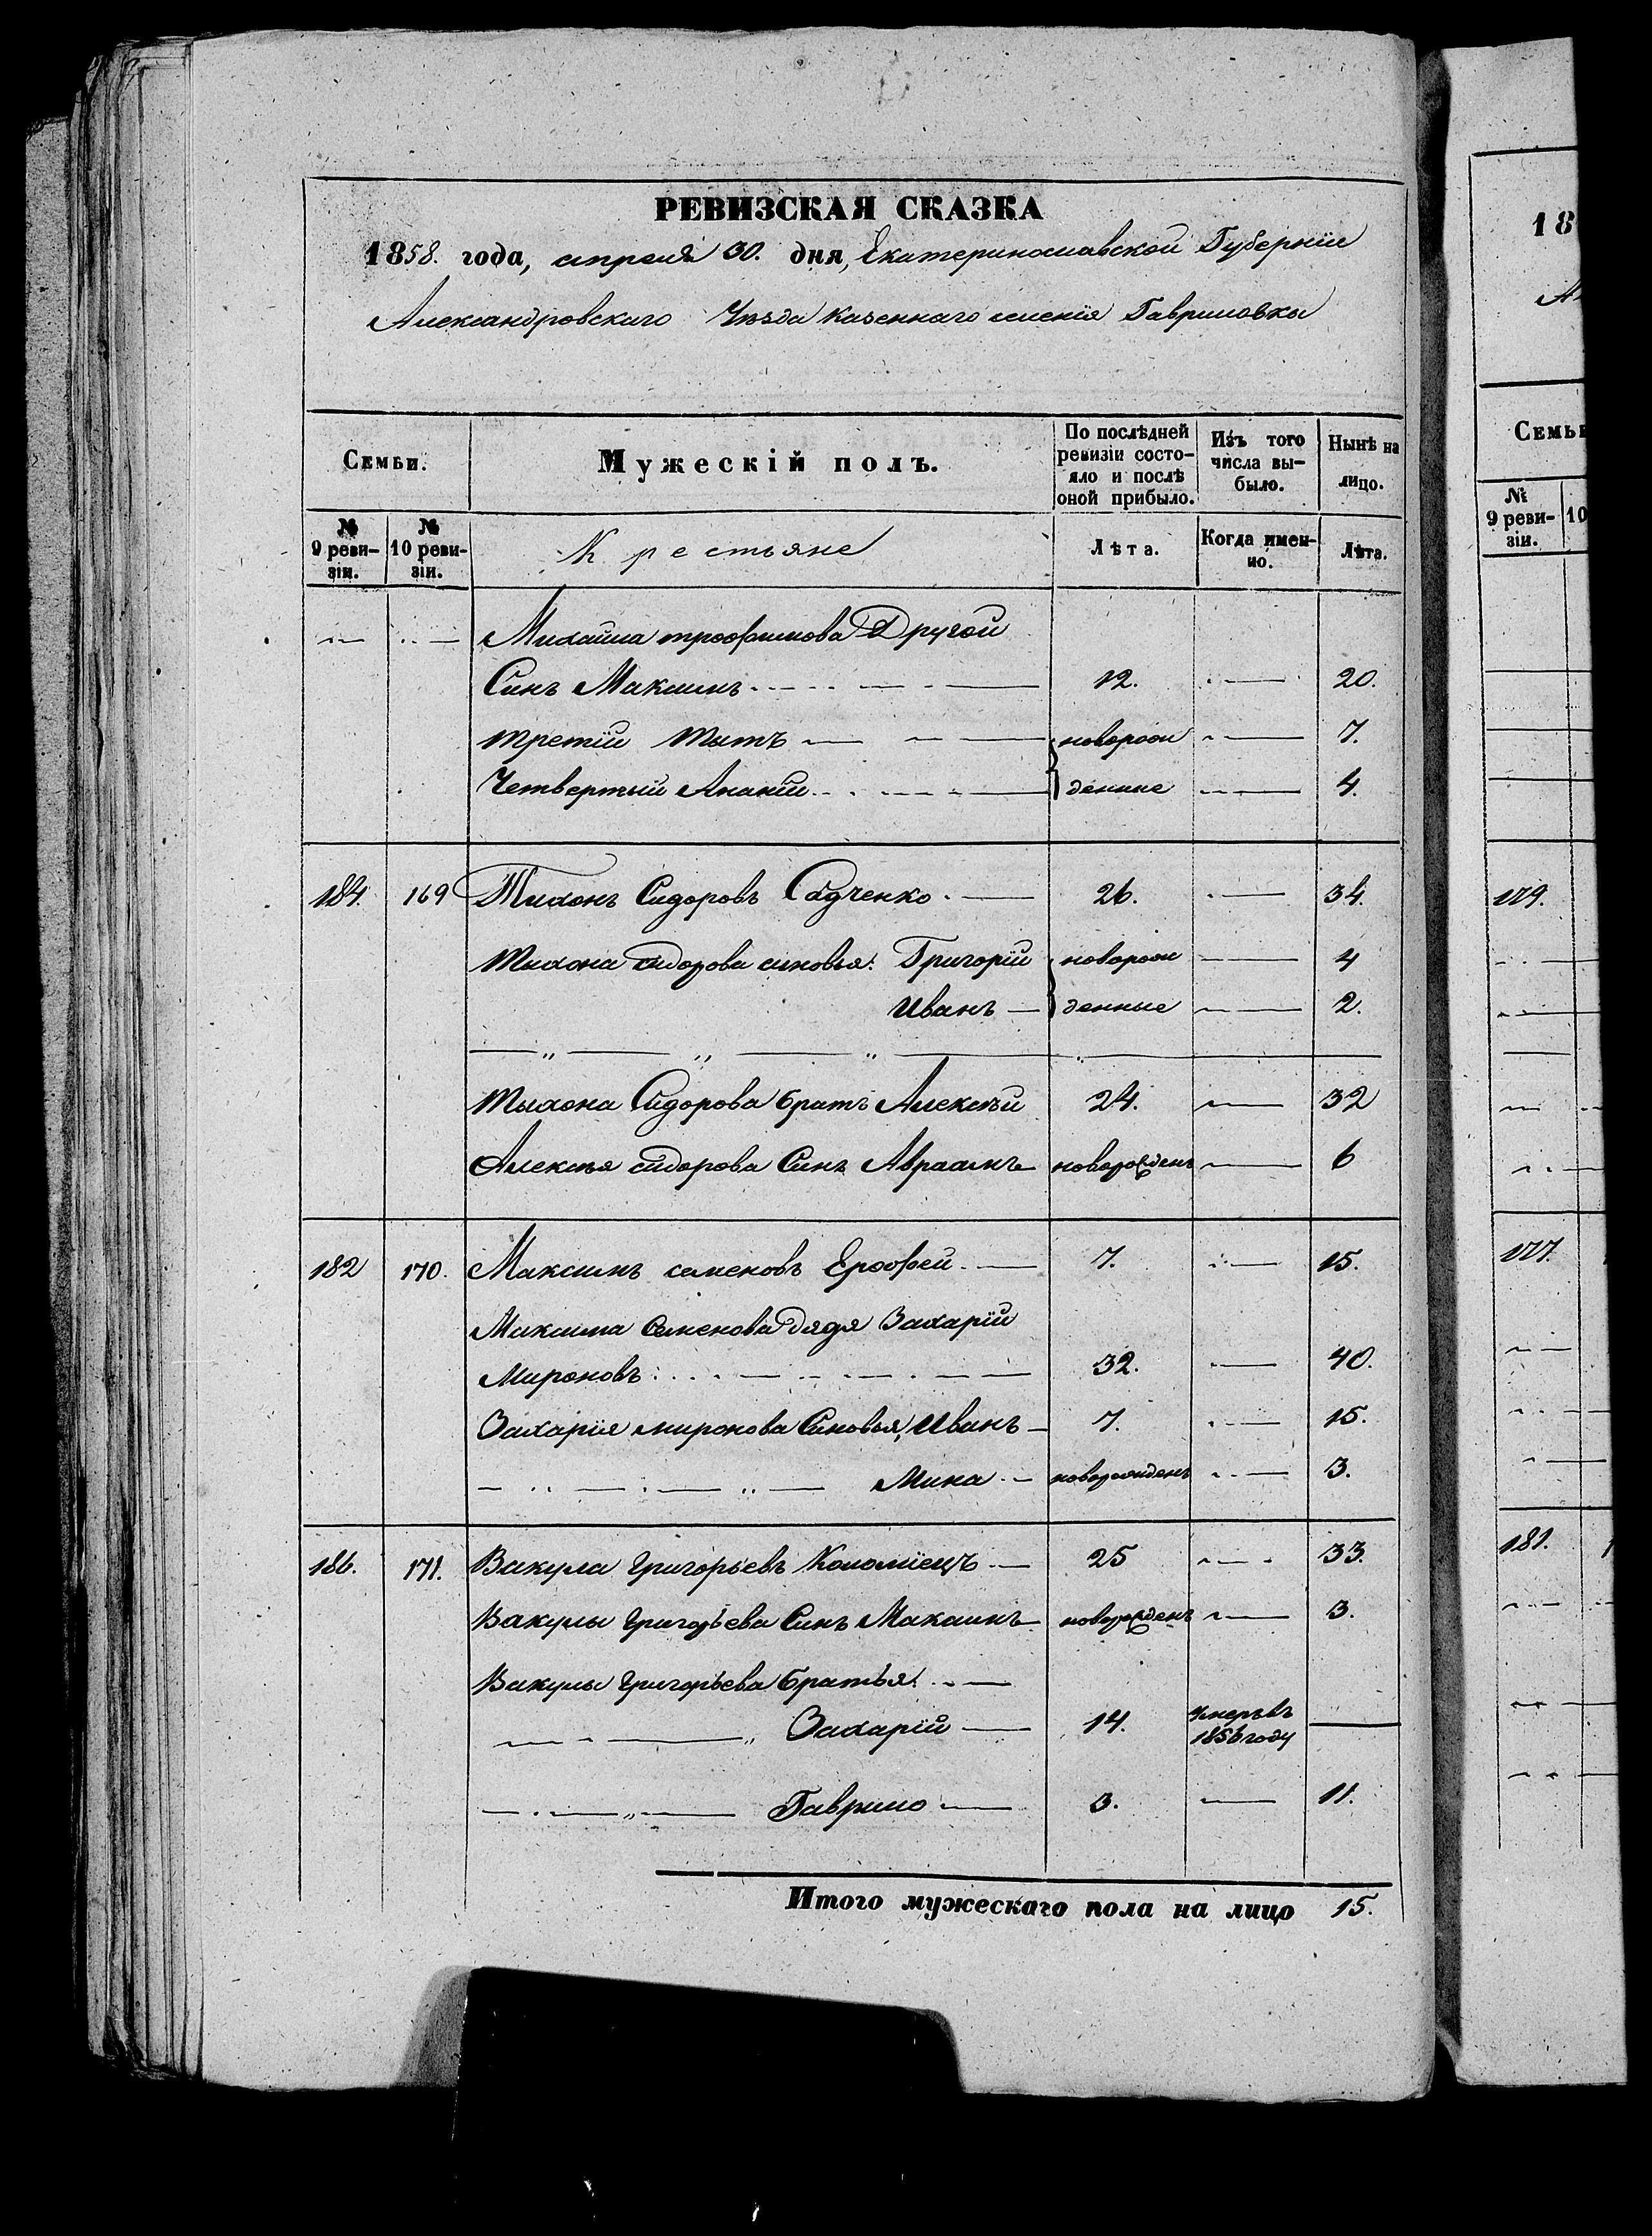 РЕВИЗСКАЯ СКАЗКА
1858. года, апреля 30. дня, Екатеринославской Губерніи
Александровскаго Уѣзда казеннаго селенія Гавриловки
Семьи.
Мужескій полъ.
По послѣдней ревизіи состо-
яло и послѣ
оной прибыло.
Изъ того
числа вы-
было.
Нынѣ на
лицо.
№
9 реви-
зіи.
№
10 реви-
зіи.
Крестьяне
Лѣта.
Когда имен-
но.
Лѣта.
Михайла трофимова Другой
Синъ Максимъ 12. 20.
третій Тытъ новорож 7.
Четвертый Ананій денные 4.
184. 169 Тихонъ Сидоровъ 26. 34.
Тихона сидорова синовья: Григорій новорож 4
Иванъ денные 2.
Тихона Сидорова братъ Алексѣй 24. 32
Алексѣя сидорова Синъ Авраамъ новорожденъ 6
182 170. Максимъ семеновъ Ерофей 7. 15.
Максима Семенова дядя Захарій
Мироновъ 32. 40.
Захарія миронова Синовья, Иванъ 7. 15.
Мина новорожденъ 3.
186. 171. Вакула Григорьевъ Коломіецъ 25 33.
Вакулы Григорьева Синъ Максимъ новорожденъ 3.
Вакулы Григорьева братья:
Захарій 14. умеръ въ
1856 году
Гаврило 3. 11.
Итого мужескаго пола на лицо 15.
18
Семьи
№
9 реви-
зіи.
10
179.
177.
181.